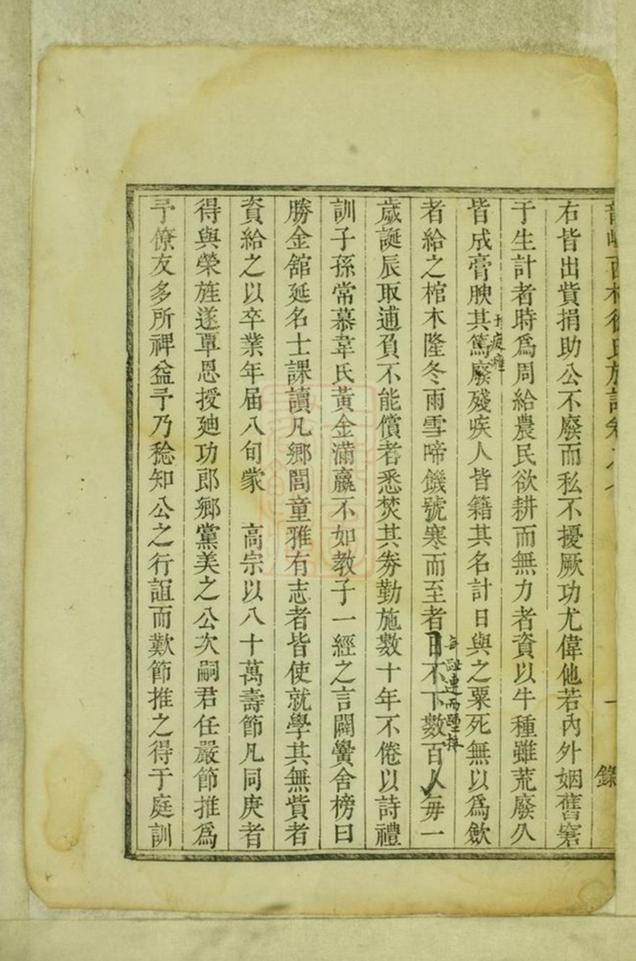 右皆出貲捐助公不廢而私不擾厥功尤偉他若內外姻舊窘
于生計者時爲周給農民欲耕而無力者資以牛種雖荒廢久
皆成膏腴其篤廢殘疾人皆籍其名計日與之粟死無以爲歛
者給之棺木隆冬雨雪啼饑號寒而至者日不下數百人每一
歲誕辰取逋負不能償者悉焚其券勤施數十年不倦以詩禮
訓子孫常慕韋氏黃金滿籯不如敎子一經之言闢黌舍榜曰
勝金舘延名士課讀凡鄉閭童雅有志者皆使就學其無貲者
資給之以卒業年届八旬蒙 高宗以八十萬壽節凡同庚者
得與榮旌遂覃恩授廸功郎鄉黨美之公次嗣君任嚴節推爲
予僚友多所裨益予乃稔知公之行誼而歎節推之得于庭訓